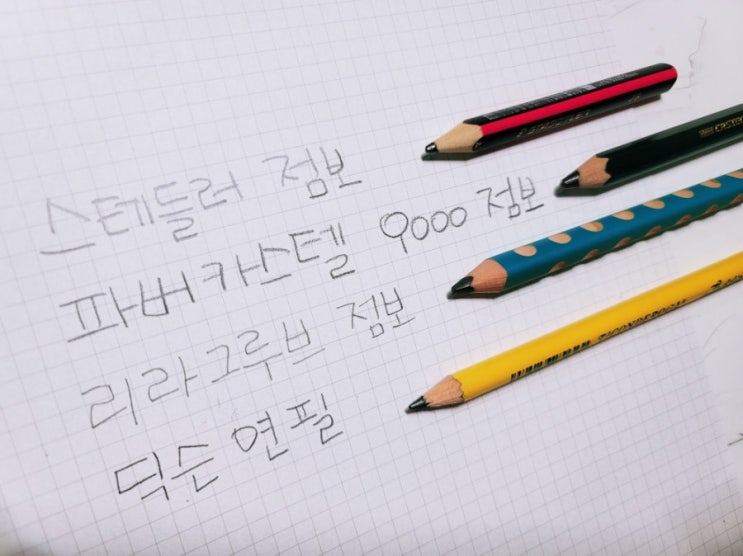 스테들러 점보
파버카스텔 9000 점보
리라그루브 점보
딕슨 연필